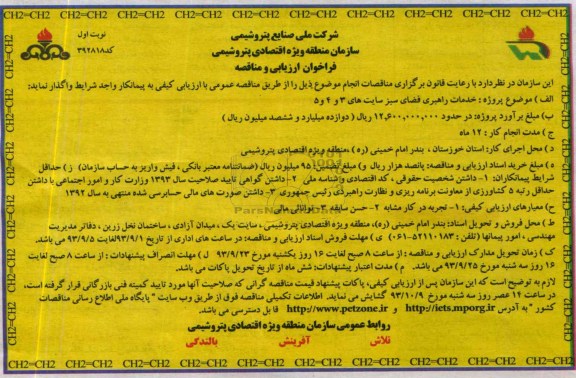 شرکت ملی صنایع پتروشیمی
سازمان منطقه ویژه اقتصادی پتروشیمی
فراخوان ارزیابی و مناقصه
نوبت اول
کد ۳۹۲۸۱۸
این سازمان در نظر دارد با رعایت قانون برگزاری مناقصات انجام موضوع ذیل را از طریق مناقصه عمومی با ارزیابی کیفی به پیمانکار واجد شرایط واگذار نماید:
الف ) موضوع پروژه : خدمات راهبری فضای سبز سایت های ۳ و ۴ و ۵
ب) مبلغ برآورد پروژه: در حدود ۱۲,۶۰۰,۰۰۰,۰۰۰ ریال ( دوازده میلیارد و ششصد میلیون ریال )
ج ) مدت انجام کار : ۱۲ ماه
د ) محل اجرای کار: استان خوزستان ، بندر امام خمینی (ره) ،منطقه ویژه اقتصادی پتروشیمی
ه) مبلغ خرید اسناد ارزیابی و مناقصه: پانصد هزار ریال و) مبلغ تضمین: ۹۵۰ میلیون ریال (ضمانتنامه معتبر بانکی ، فیش واریز به حساب سازمان) ز ) حداقل
شرایط پیمانکاران: ۱- داشتن شخصیت حقوقی ، کد اقتصادی و شناسه ملی ۲- داشتن گواهی تایید صلاحیت سال ۱۳۹۳ وزارت کار و امور اجتماعی با داشتن
حداقل رتبه ۵ کشاورزی از معاونت برنامه ریزی و نظارت راهبردی رئیس جمهوری ۳- داشتن صورت های مالی حسابرسی شده منتهی به سال ۱۳۹۲
ح) معیارهای ارزیابی کیفی: ۱- تجربه در کار مشابه ۲- حسن سابقه ۳- توانائی مالی
ط ) محل فروش و تحویل اسناد: بندر امام خمینی (ره)، منطقه ویژه اقتصادی پتروشیمی ، سایت یک ، میدان آزادی ، ساختمان نخل زرین ، دفاتر مدیریت
مهندسی ، امور پیمانها (تلفن : ۵۲۱۱۰۱۸۳-۰۶۱) ی ) مهلت فروش اسناد ارزیابی و مناقصه: در ساعت های اداری از تاریخ ۹۳/۹/۱ لغایت ۹۳/۹/۵ می باشد.
ک ) زمان تحویل مدارک ارزیابی و مناقصه : از ساعت ۸ صبح لغایت ۱۶ روز یکشنبه مورخ ۹۳/۹/۲۳ ل ) مهلت انصراف پیشنهادات : از ساعت ۸ صبح لغایت
۱۶ روز سه شنبه مورخ ۹۳/۹/۲۵ می باشد. م ) مدت اعتبار پیشنهادات: شش ماه از تاریخ تحویل پاکات می باشد.
لازم به توضیح است که این سازمان پس از ارزیابی کیفی، پاکات پیشنهاد قیمت مناقصه گرانی که صلاحیت آنها مورد تایید کمیته فنی بازرگانی قرار گرفته است،
در ساعت ۱۲ عصر روز سه شنبه مورخ ۹۳/۱۰/۹ گشایش می نماید. اطلاعات تکمیلی مناقصه فوق از طریق وب سایت " پایگاه ملی اطلاع رسانی مناقصات
کشور " به آدرس http://iets.mporg.ir و http://www.petzone.ir قابل دسترسی می باشد.
روابط عمومی سازمان منطقه ویژه اقتصادی پتروشیمی
تلاش آفرینش بالندگی